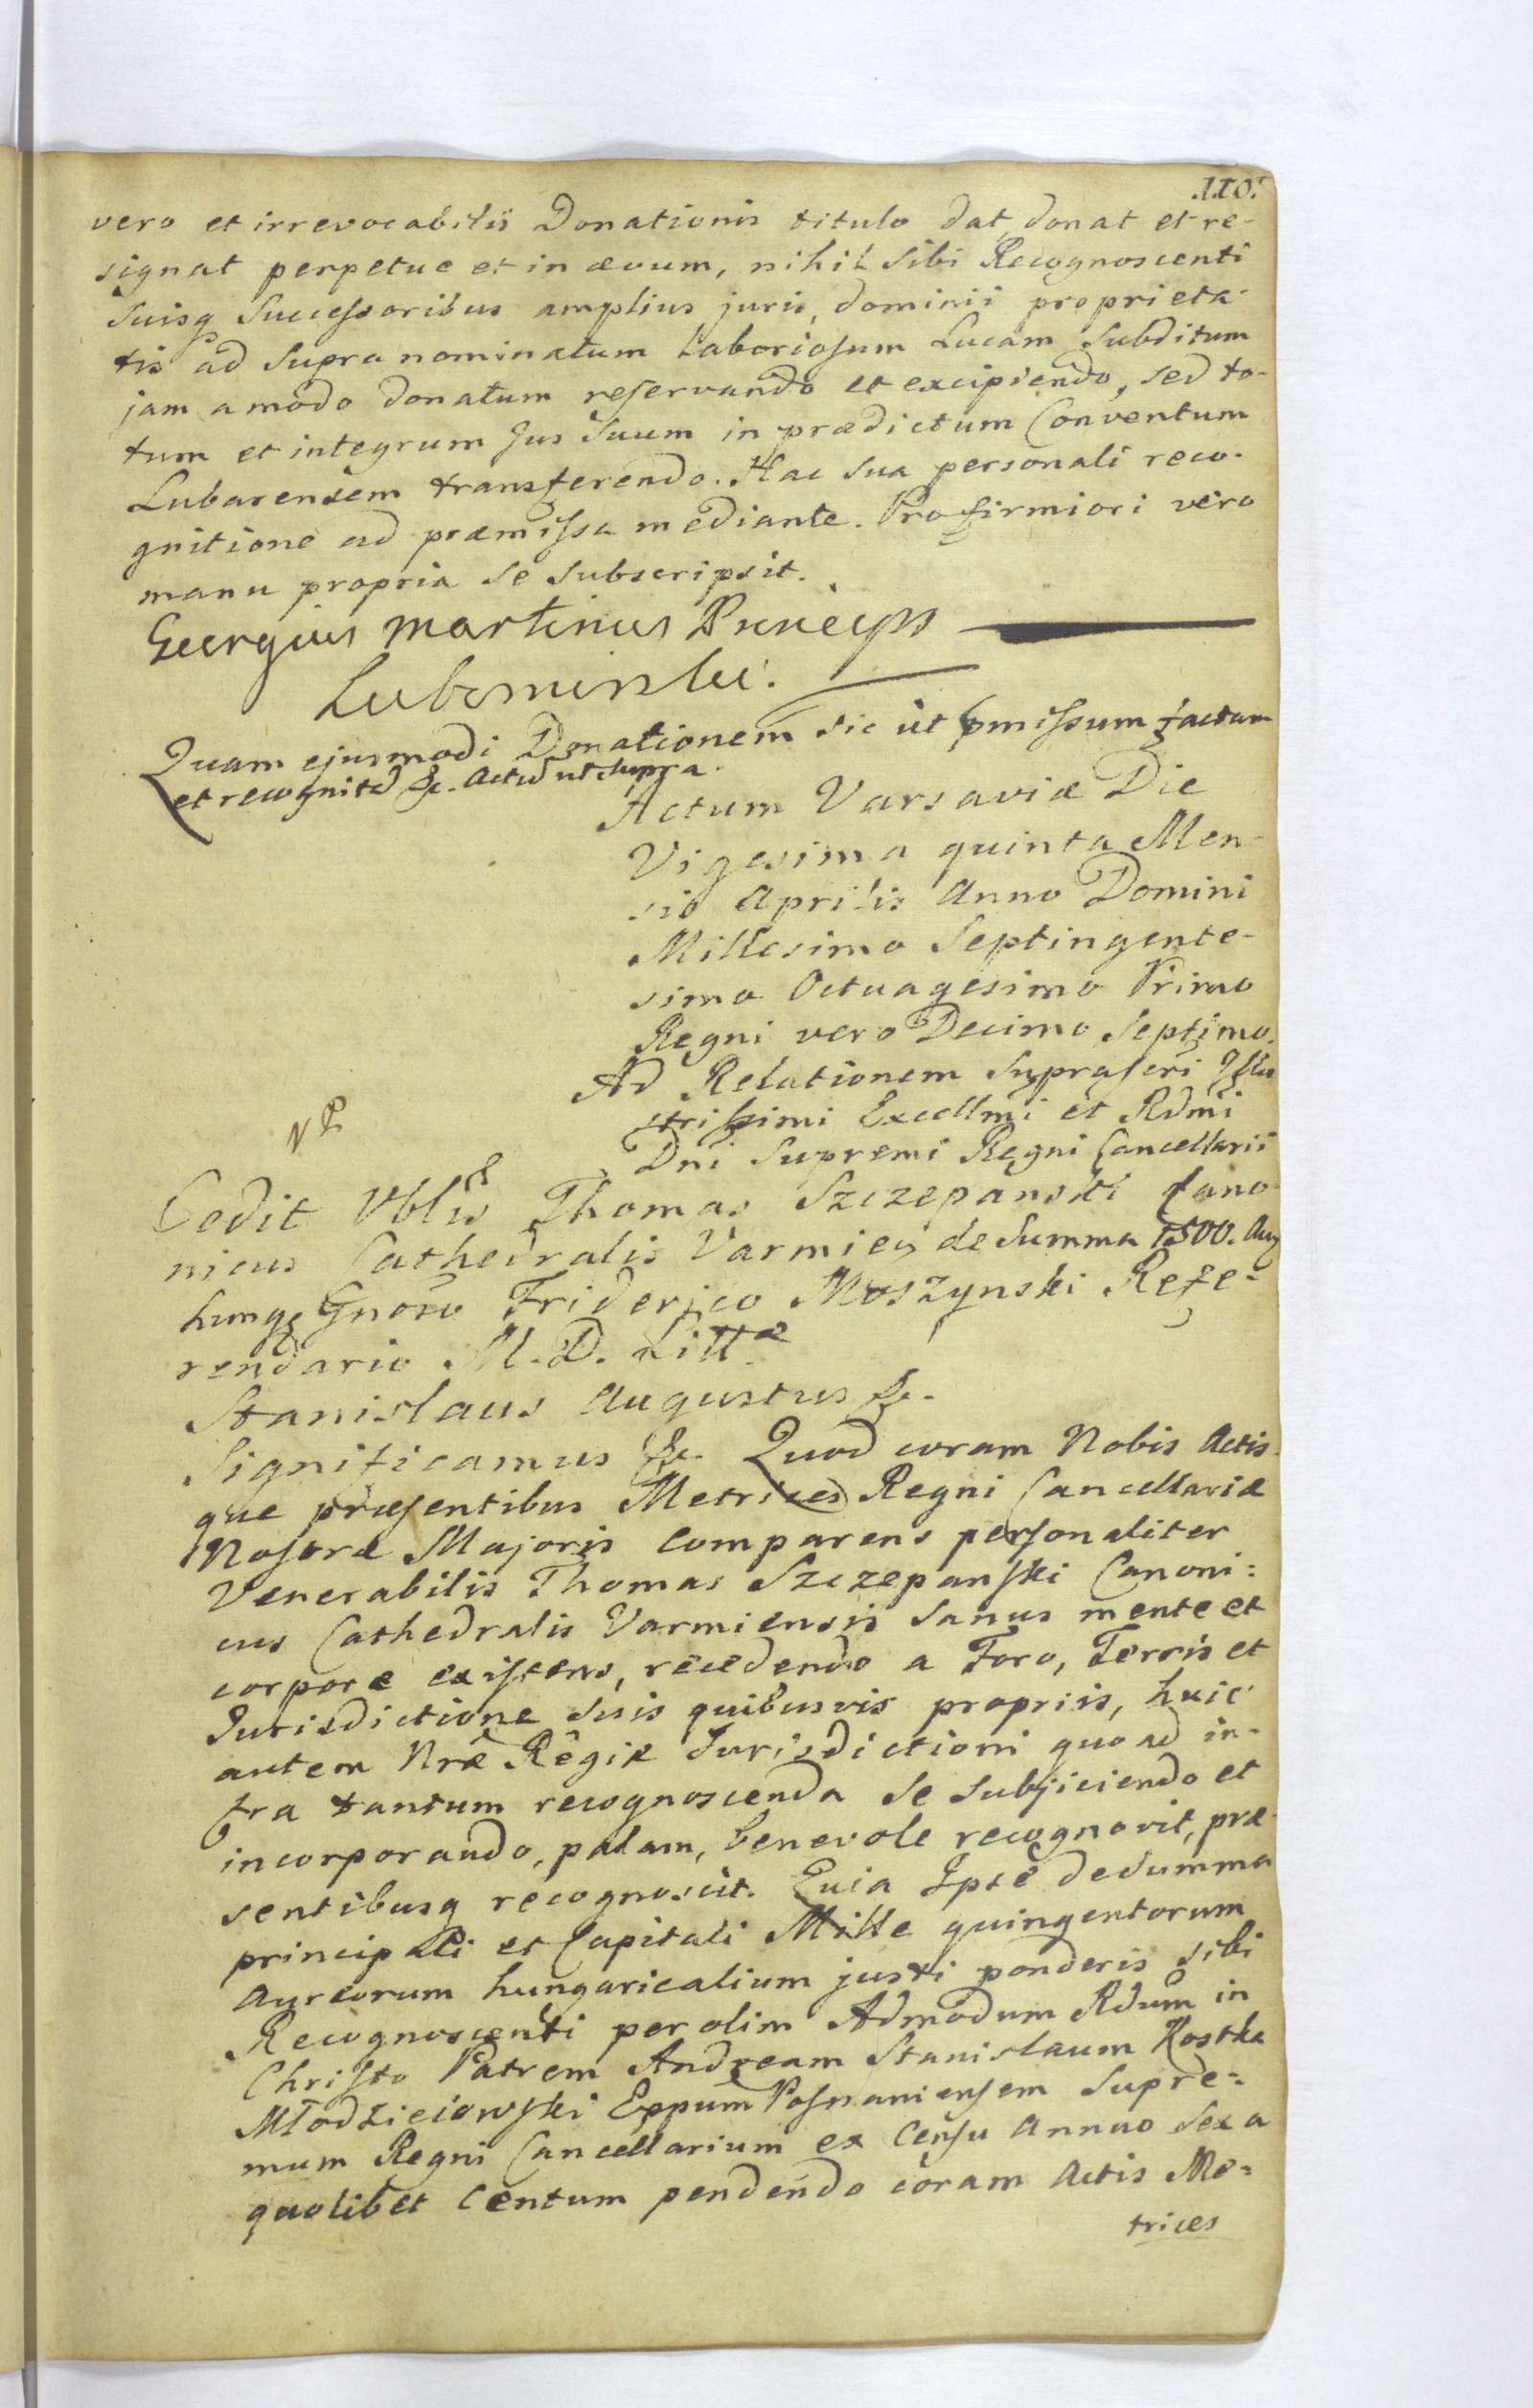 .110.
vero et irrevocabilis Donationis titulo dat, donat et re-
signat perpetue et in ævum, nihil sibi Recognoscenti
suisq Successoribus amplius juris, dominii proprieta-
tis ad supra nominatum Laboriosum Lucam Subditum
jam a modo donatum reservando et excipiendo, sed to-
tum et integrum Jus Suum in prædictum Conventum
Lubarensem transferendo. Hac sua personali reco-
gnitione ad præmissa mediante. Pro firmiori vero
manu propria se subscripsit.
Georgius Martinus Princeps
Lubomirski.
Quam ejusmodi Donationem sic ut pmissum factam
et recognitã &c. Actũ ut supra.
Actum Varsaviæ Die
Vigesima quinta Men-
sis Aprilis Anno Domini
Millesimo Septingente-
simo Octuagesimo Primo
Regni vero Decimo Septimo.
Ad Relationem Suprascri Illu
strissimi Excellmi et Rdmi
Dni Supremi Regni Cancellarii
NP
Cedit Vblis Thomas Szczepanski Cano
nicus Cathedralis Varmien de Summa 1500. Aur
hung Gnoso Friderico Moszynski Refe-
rendario M. D. Littæ
Stanislaus Augustus &c.
Significamus &c. Quod coram Nobis Actis
que præsentibus Metrices Regni Cancellariæ
Nostræ Majoris comparens personaliter
Venerabilis Thomas Szczepanski Canoni=
cus Cathedralis Varmiensis sanus mente et
corpore existens, recedendo a Foro, Terris et
Jurisdictione suis quibusvis propriis, huic
autem Nræ Regiæ Jurisdictioni quoad in-
fra tantum recognoscenda se subjiciendo et
incorporando, palam, benevole recognovit, præ-
sentibusq recognoscit. Quia Ipse de summa
principali et Capitali Mille quingentorum
Aureorum hungaricalium justi ponderis sibi
Recognoscenti per olim Admodum Rdum in
Christo Patrem Andream Stanislaum Kostka
Młodzieiowski Eppum Posnaniensem Supre=
mum Regni Cancellarium ex Censu Annuo Sex a
quolibet Centum pendendo coram Actis Me=
trices